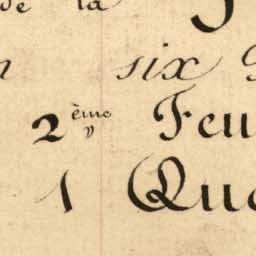 de la
six
2ème Feu
1 Qua